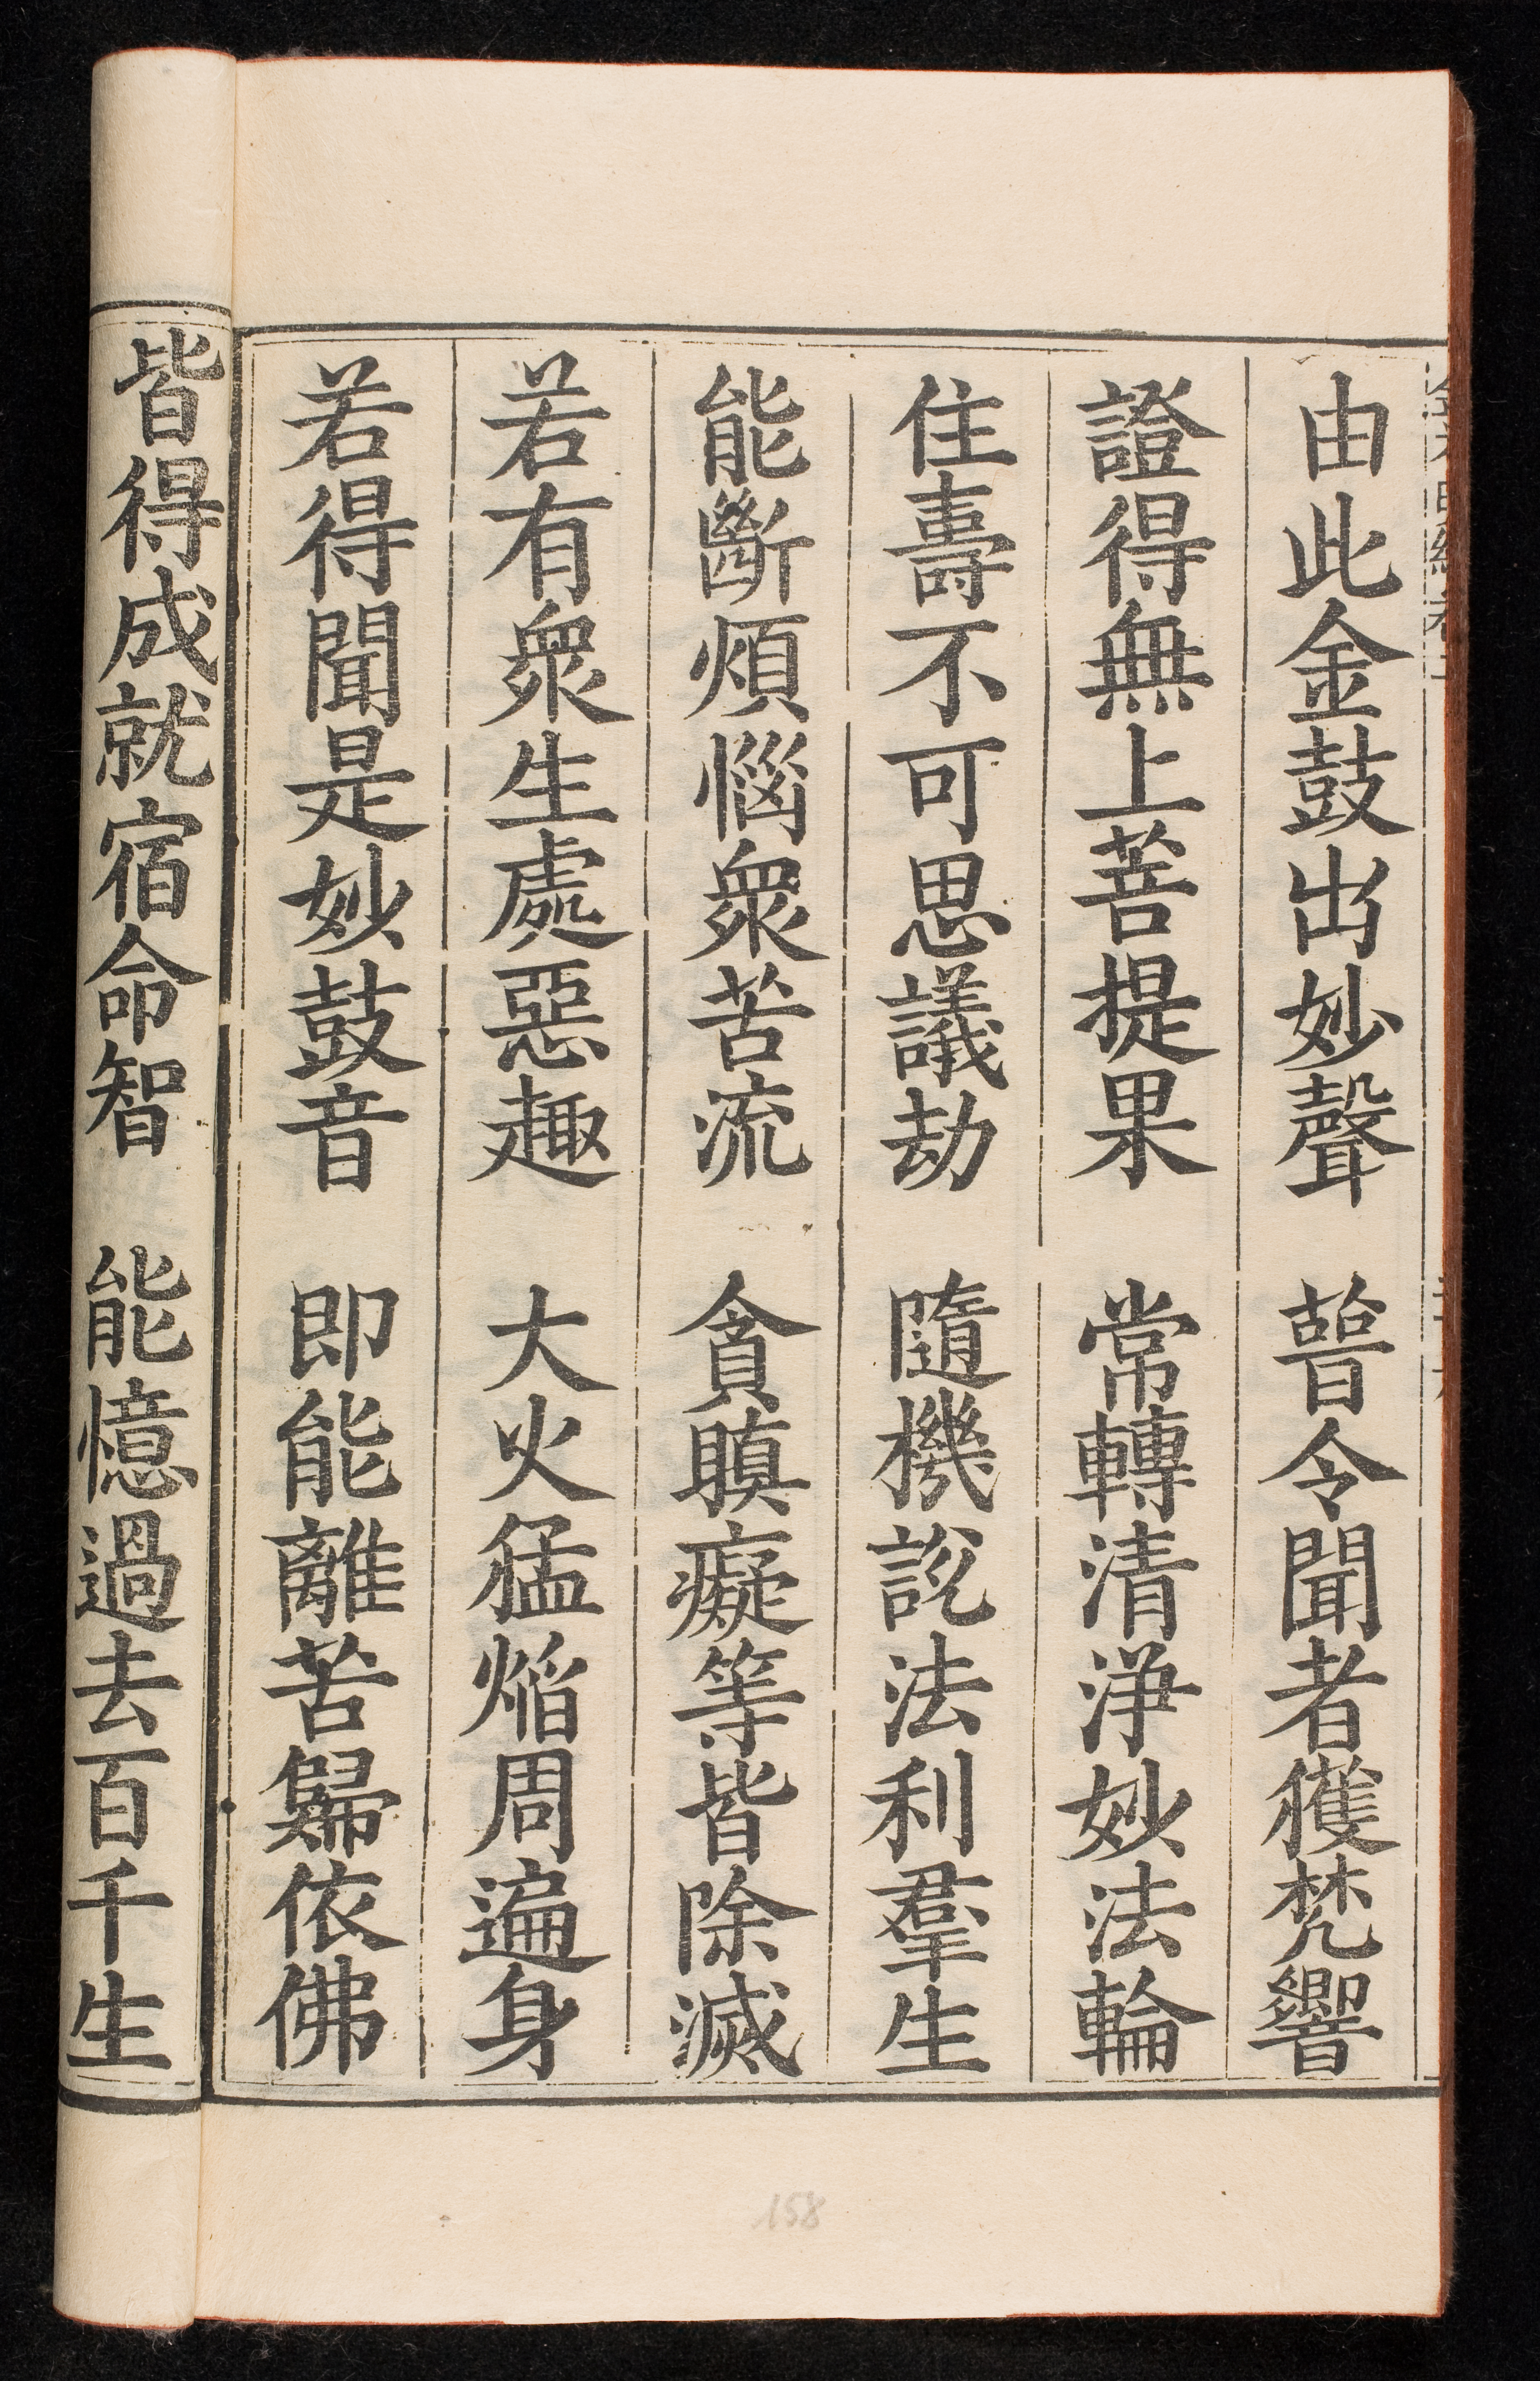 由此金鼓出妙聲　普令聞者獲梵響
證得無上菩提果　常轉清淨妙法輪
住壽不可思議劫　隨機說法利羣生
能斷煩惱衆苦流　貪瞋癡等皆除滅
若有衆生處惡趣　大火猛焰周遍身
若得聞是妙鼓音　即能離苦歸依佛
皆得成就宿命智　能憶過去百千生
158